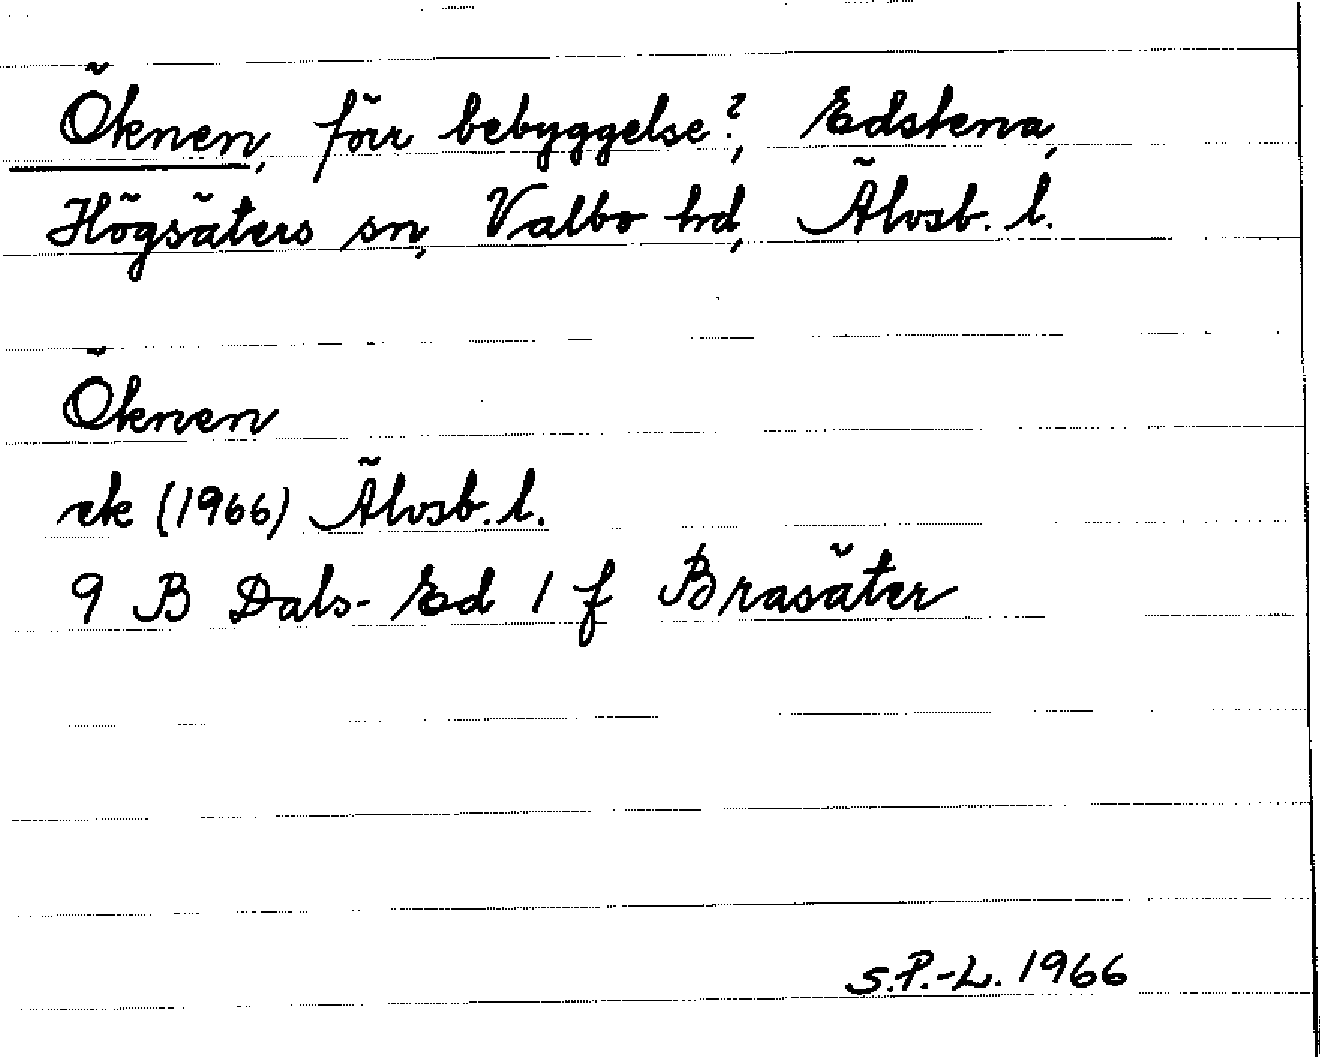 Öknen, förr bebyggelse?, Edstena,
Högsäters sn, Valbo hd, Älvsb. l.
Öknen
ek (1966) Älvsb. l.
9 B Dals-Ed 1 f Brasäter
S.P.-L. 1966